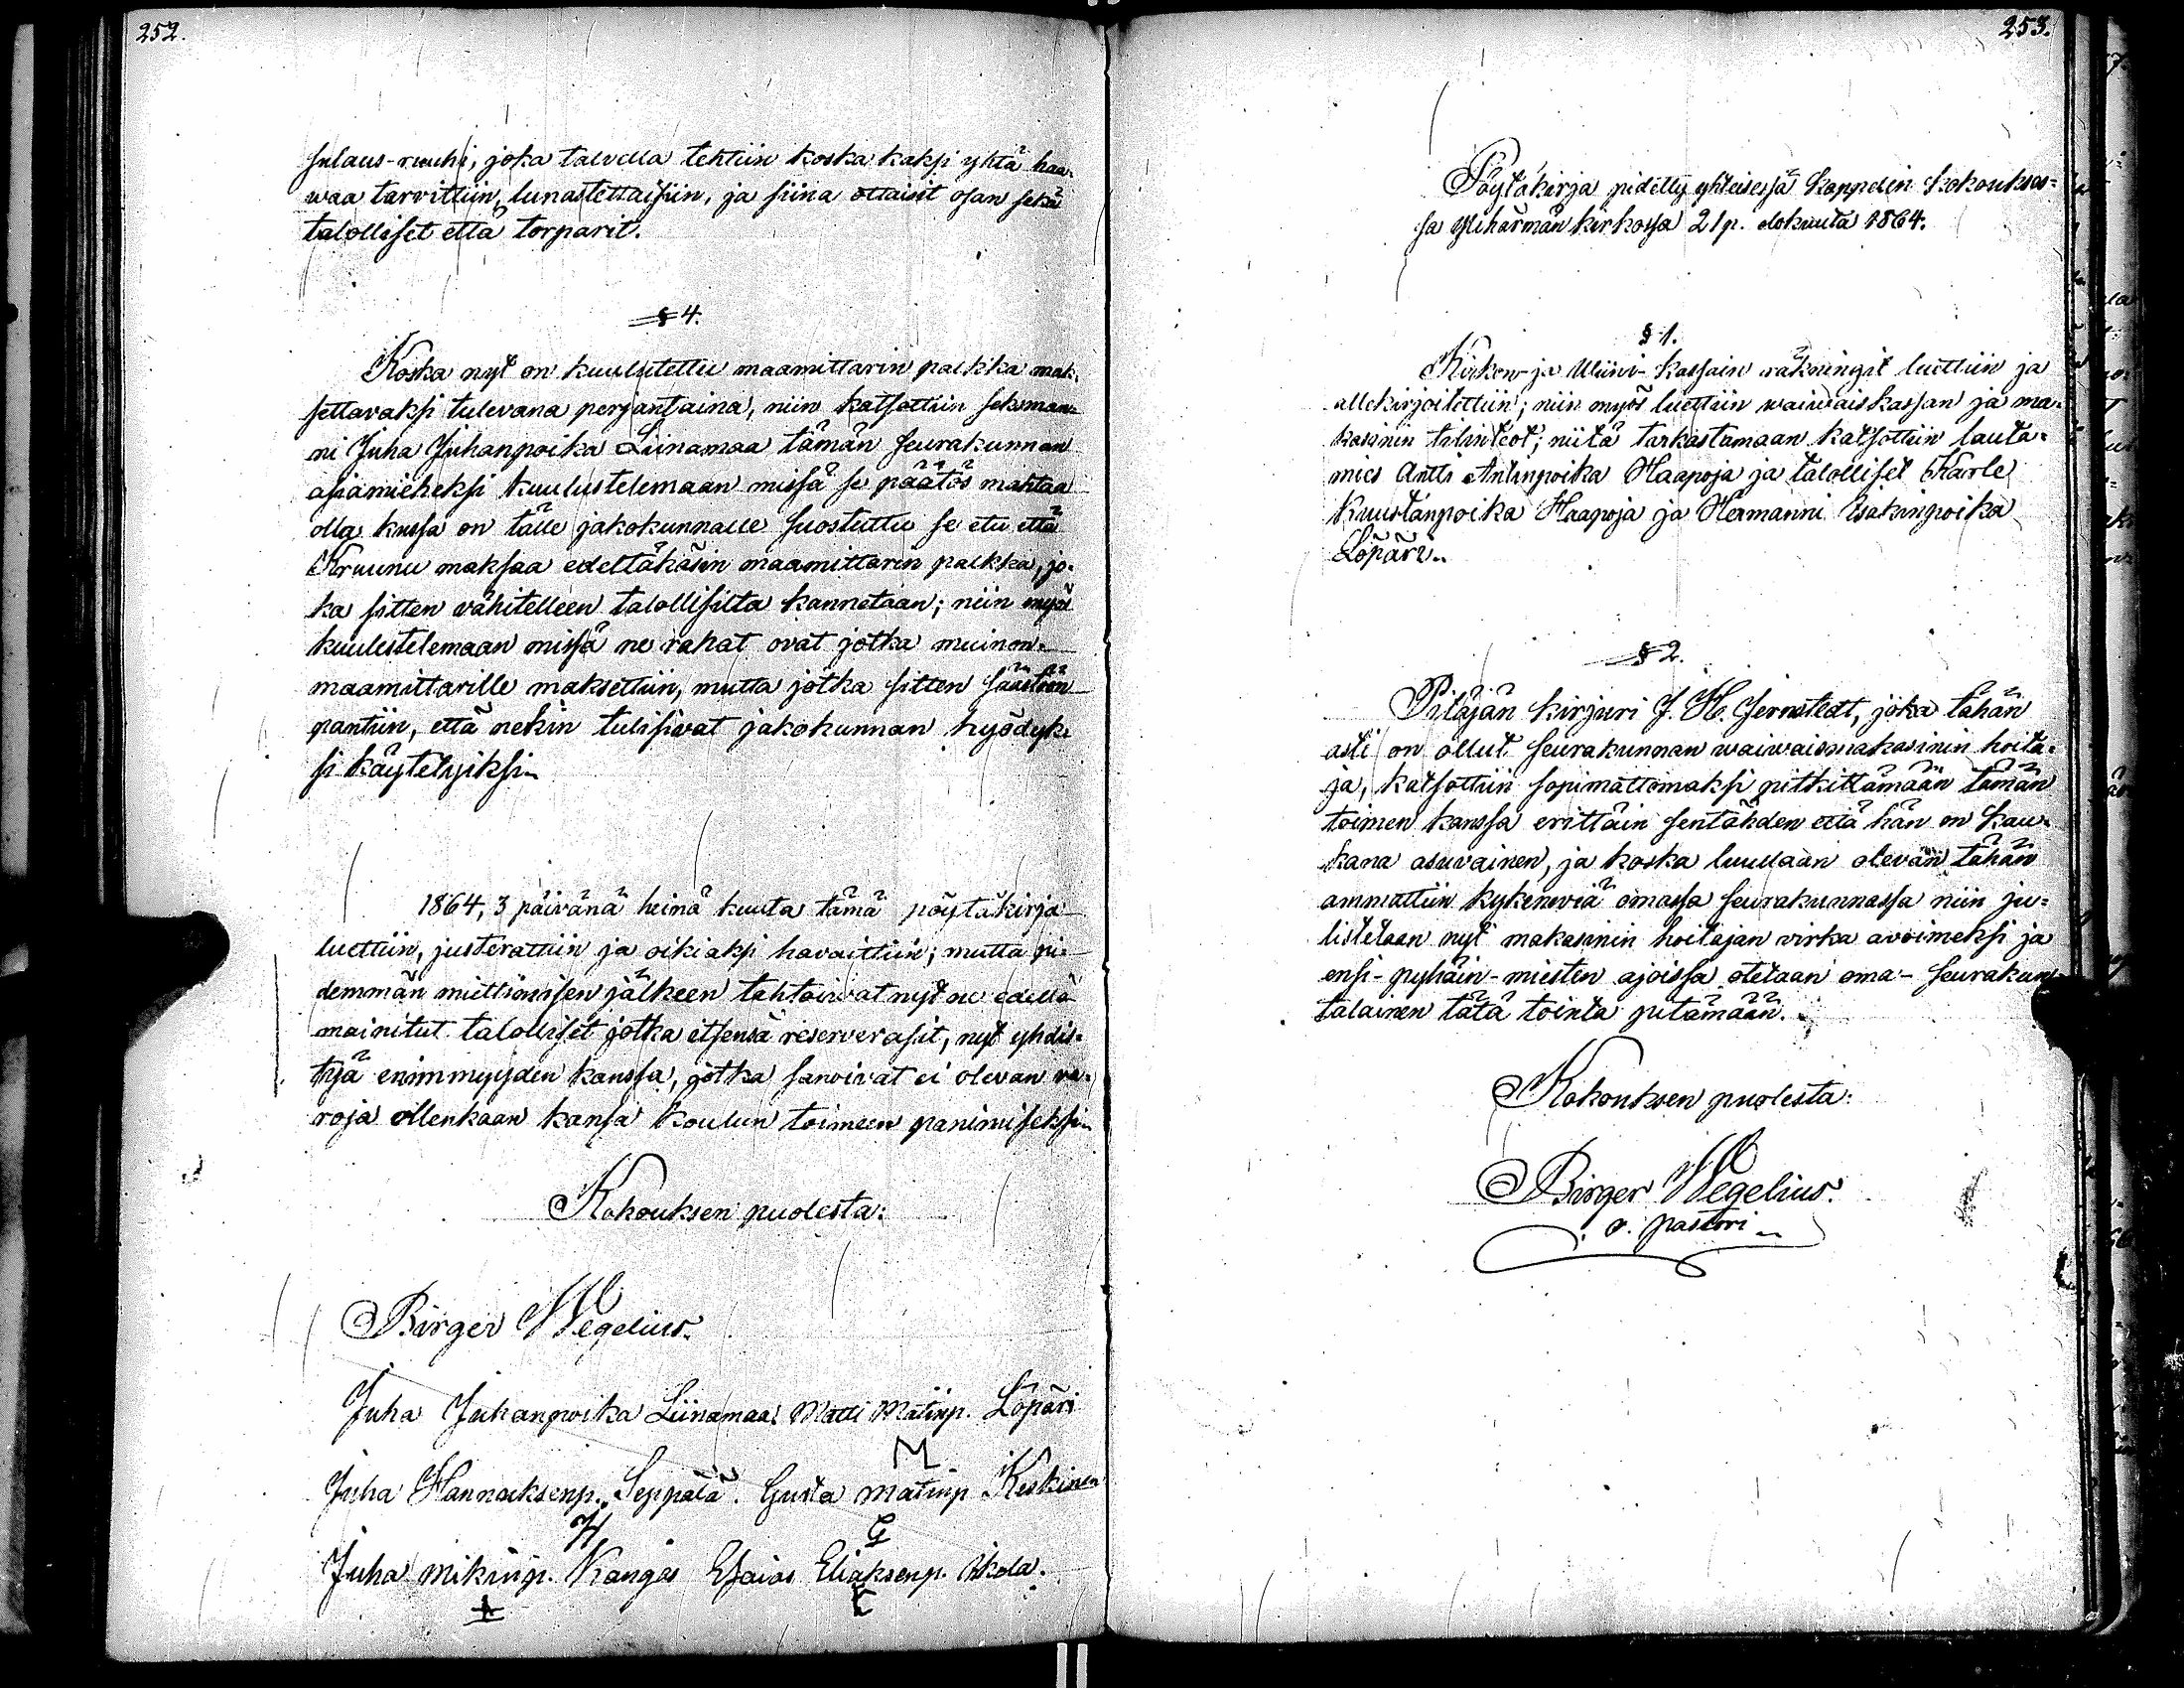 252.
sulaus-ruuhi, joka talvella tehtiin koska kaksi yhtä haa-
waa tarvittiin, lunastettaisiin, ja siina ottaisit osan sekä
talolliset että torparit.
§ 4.
Koska nyt on kuulutettu maamittarin palkka mak-
settavaksi tulevana perjantaina, niin katsottiin seksman-
ni Juha Juhanpoika Liinamaa tämän seurakunnan
asiamieheksi kuulustelemaan missä se päätös mahtaa
olla kussa on tälle jakokunnalle suostuttu se etu että
Kruunu maksaa edeltäkäsin maamittarin palkka, jo-
ka sitten vähitelleen talollisilta kannetaan; niin myös
kuulestelemaan missä ne rahat ovat jotka muinon
maamittarille maksettiin, mutta jotka sitten säästöön
pantiin, että nekin tulisivat jakokunnan hyödyk-
si käytetyiksi.
1864, 3 päivänä heinä kuuta tämä pöytäkirja
luettiin, justerattiin ja oikiaksi havaittiin; mutta pi-
demmän miettimisen jälkeen tahtoivat nyt ne edellä
mainitut talolliset jotka itsensä reserverasit, nyt yhdis-
tyä enimmyyden kanssa, jotka sanoivat ei olevan va-
roja ollenkaan kansa koulun toimeen panimiseksi.
Kokouksen puolesta:
Birger Wegelius.
Juha Juhanpoika Liinamaa Matti Matinp. Löpäri
M
Juha Hannuksenp. Seppälä. Gusta Matinp Keskinen
H G
Juha Mikinp. Kangas Esaias Eliaksenp. Ukola.
E
253.
Pöytäkirja pidetty yhteisessä Kappelin kokoukses-
sa Yliharmän kirkossa 21 p. elokuuta 1864.
§ 1.
Kirkon- ja Wiini- kassain räkningit luettiin ja
allekirjoitettiin; niin myös luettiin waiwaiskassan ja ma-
kasinin tilinteot; niitä tarkastamaan katsottiin lauta-
mies Antti Antinpoika Haapoja ja talolliset Karle
Kuustanpoika Haapoja ja Hermanni Isakinpoika
Löpäri.
§ 2.
Pitäjän kirjuri J. H. Jernstedt, joka tähän
asti on ollut seurakunnan waiwaismakasinin hoita-
ja, katsottiin sopimattomaksi pitkittämään tämän
toimen kanssa erittäin sentähden että hän on kau-
kana asuvainen, ja koska luullaan olevan tähän
ammattiin kykeneviä omassa seurakunnassa niin ju-
listetaan nyt makasinin hoitajan virka avoimeksi ja
ensi-pyhäin-miesten ajoissa otetaan oma-seurakun-
talainen tätä tointa pitämään.
Kokouksen puolesta:
Birger Wegelius.
v. pastori